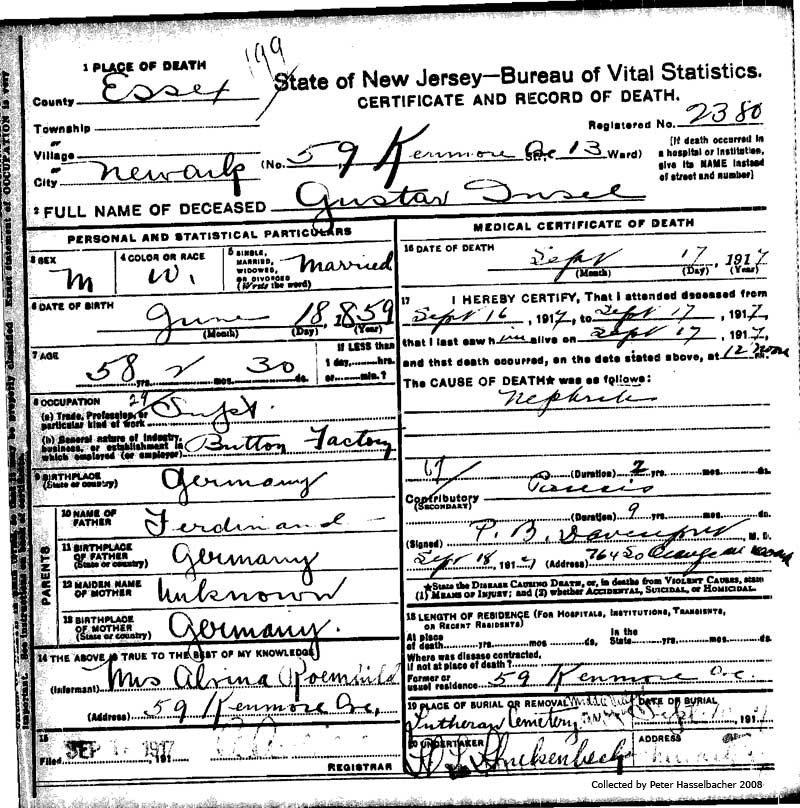 199
1 PLACE OF DEATH
County Essex
State of New Jersey—Bureau of Vital Statistics.
CERTIFICATE AND RECORD OF DEATH.
Township
Registered No. 2380
or
Village
or
City Newark (No. 59 Kenmore Ave St.; 13 Ward)
[If death occurred in a hospital or institution, give its NAME instead of street and number]
2 FULL NAME OF DECEASED Gustav Insel
PERSONAL AND STATISTICAL PARTICULARS
3 SEX M
4 COLOR OR RACE W.
5 SINGLE, MARRIED, WIDOWED, OR DIVORCED (Write the word) Married
6 DATE OF BIRTH June 18, 1859
(Month) (Day) (Year)
7 AGE 58 yrs. 2 mos. 30 ds.
If LESS than 1 day,.....hrs. or.....min.?
8 OCCUPATION
(a) Trade, Profession, or particular kind of work Supt.
(b) General nature of industry, business, or establishment in which employed (or employer) Button Factory
9 BIRTHPLACE (State or country) Germany
PARENTS
10 NAME OF FATHER Ferdinand
11 BIRTHPLACE OF FATHER (State or country) Germany
12 MAIDEN NAME OF MOTHER Unknown
13 BIRTHPLACE OF MOTHER (State or country) Germany.
14 THE ABOVE IS TRUE TO THE BEST OF MY KNOWLEDGE
(Informant) Mrs Alvina Roemhild
(Address) 59 Kenmore Ave,
15
Filed SEP 1917, 191
REGISTRAR
MEDICAL CERTIFICATE OF DEATH
16 DATE OF DEATH
Sept 17, 1917
(Month) (Day) (Year)
17 I HEREBY CERTIFY, That I attended deceased from
Sept 16, 1917, to Sept 17, 1917,
that I last saw him alive on Sept 17, 1917,
and that death occurred, on the date stated above, at 12 Noon
The CAUSE OF DEATH★ was as follows:
Nephritis
(Duration) 2 yrs. mos. ds.
Contributory (SECONDARY) Paresis
(Duration) 9 yrs. mos. ds.
(Signed) P. B. Davenport, M. D.
Sept 18, 1917 (Address) 764 So Orange Ave
★State the DISEASE CAUSING DEATH, or, in deaths from VIOLENT CAUSES, state (1) MEANS OF INJURY; and (2) whether ACCIDENTAL, SUICIDAL, OR HOMICIDAL.
18 LENGTH OF RESIDENCE (FOR HOSPITALS, INSTITUTIONS, TRANSIENTS, OR RECENT RESIDENTS)
At place of death yrs. mos. ds. In the State yrs. mos. ds.
Where was disease contracted, if not at place of death?
Former or usual residence 59 Kenmore Ave.
19 PLACE OF BURIAL OR REMOVAL
Lutheran Cemetery
DATE OF BURIAL
Sept , 191
20 UNDERTAKER
ADDRESS
Collected by Peter Hasselbacher 2008